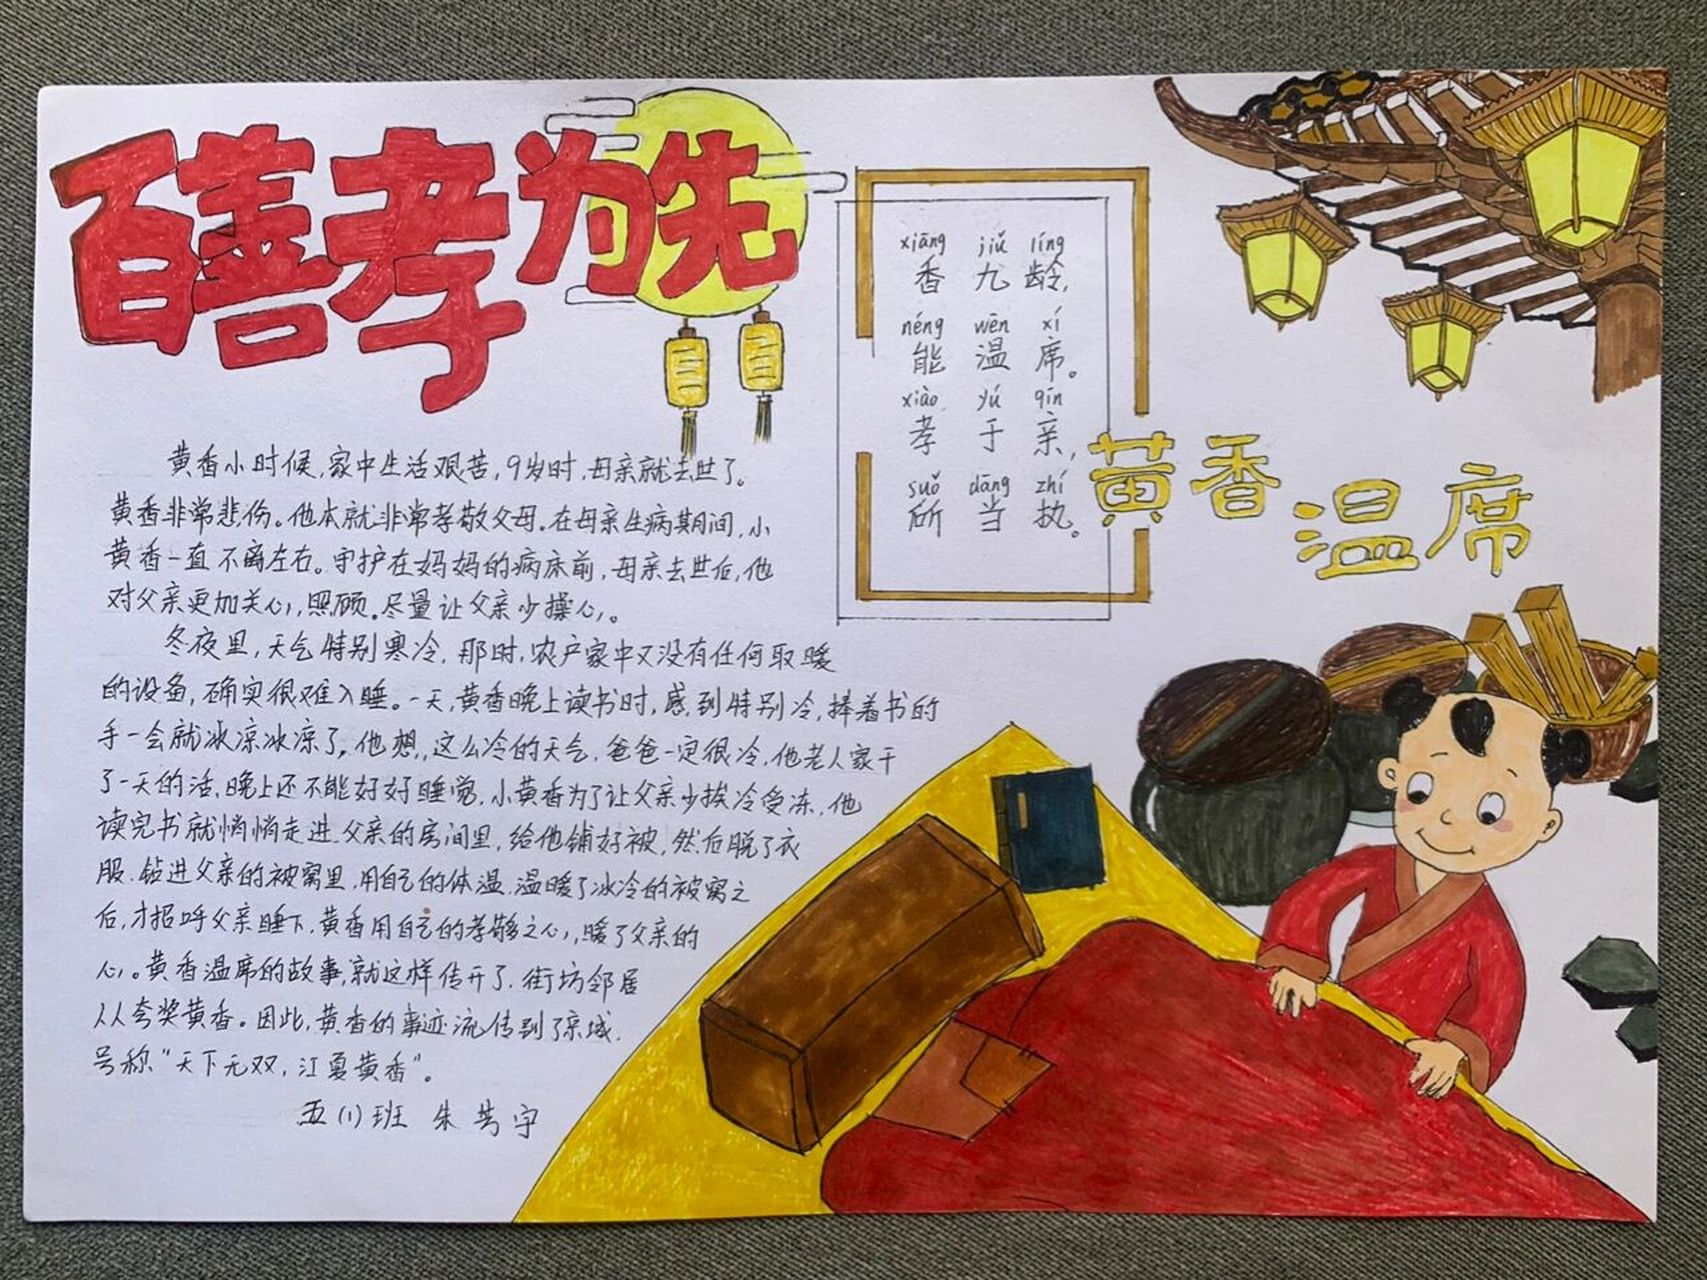 百善孝为先
xiāng jiǔ líng
香九龄,
néng wēn xí
能温席。
xiào yú qīn
孝于亲,
suǒ dāng zhí
所当执。
黄香温席
黄香小时候,家中生活艰苦,9岁时,母亲就去世了。
黄香非常悲伤。他本就非常孝敬父母。在母亲生病期间,小
黄香一直不离左右。守护在妈妈的病床前,母亲去世后,他
对父亲更加关心,照顾。尽量让父亲少操心。
冬夜里,天气特别寒冷,那时,农户家中又没有任何取暖
的设备,确实很难入睡。一天,黄香晚上读书时,感到特别冷,捧着书的
手一会就冰凉冰凉了,他想,这么冷的天气,爸爸一定很冷,他老人家干
了一天的活,晚上还不能好好睡觉,小黄香为了让父亲少挨冷受冻,他
读完书就悄悄走进父亲的房间里,给他铺好被,然后脱了衣
服,钻进父亲的被窝里,用自己的体温,温暖了冰冷的被窝之
后,才招呼父亲睡下,黄香用自己的孝敬之心,暖了父亲的
心。黄香温席的故事,就这样传开了,街坊邻居
人人夸奖黄香。因此,黄香的事迹流传到了京城,
号称“天下无双,江夏黄香”。
五(1)班 朱 宇